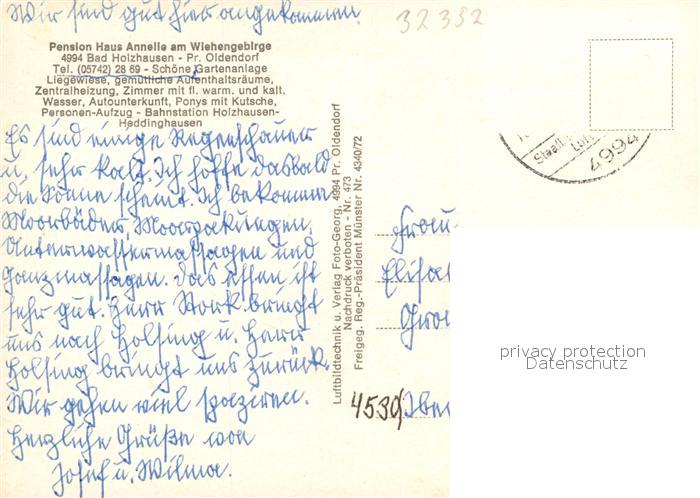 Wir sind gut hier angekommen.
32352
Pension Haus Annelie am Wiehengebirge
4994 Bad Holzhausen - Pr. Oldendorf
Tel. (05742) 28 69 - Schöne Gartenanlage
Liegewiese, gemütliche Aufenthaltsräume,
Zentralheizung, Zimmer mit fl. warm. und kalt.
Wasser, Autounterkunft, Ponys mit Kutsche,
Personen-Aufzug - Bahnstation Holzhausen-
Heddinghausen
Es sind einige Regenschauer
u. sehr kalt. Ich hoffe das bald
die Sonne scheint. Ich bekomme
Moorbäder, Moorpakungen,
Unterwassermassagen und
Ganzmassagen. Das essen ist
sehr gut. Herr Stork bringt
uns nach Holsing u. Herr
Holsing bringt uns zurück.
Wir gehen viel spaziren.
Herzliche Grüße von
Josef u. Wilma.
Luftbildtechnik u. Verlag Foto-Georg, 4994 Pr. Oldendorf
Nachdruck verboten - Nr. 473
Freigeg. Reg.-Präsident Münster Nr. 4340/72
Staatl.
Luft
4994
Frau
Elisa
4530 Ibe
privacy protection
Datenschutz